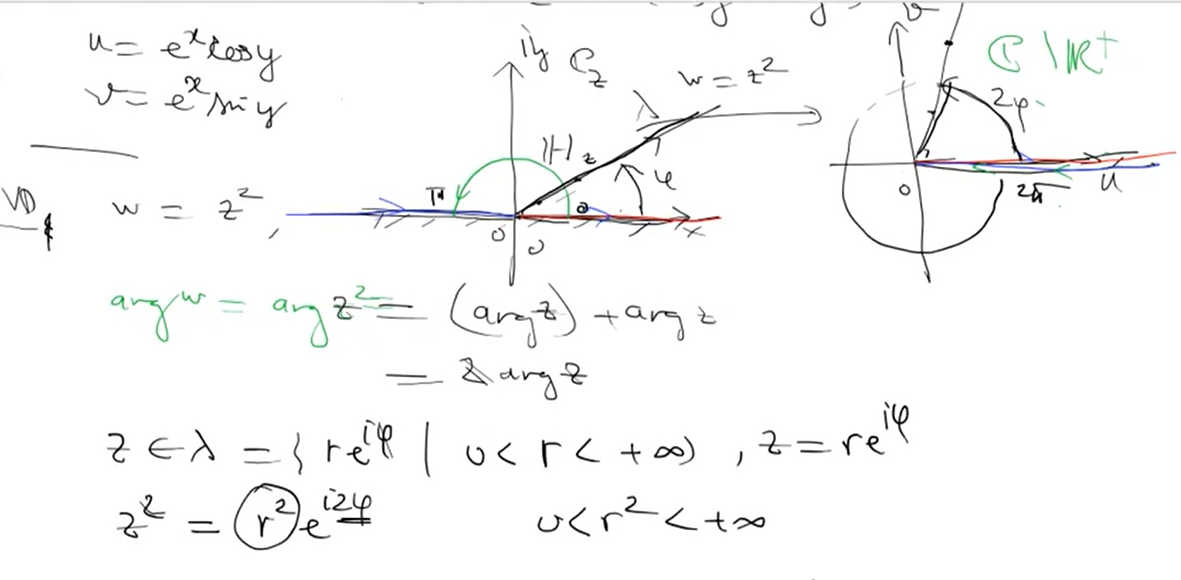 u = e^x cos y
v = e^x sin y
iy
ℂ_z
w = z²
λ
ℍ_z
φ
π
0
0
x
ℂ \ ℝ⁺
2φ
0
2π
u
VD
w = z²,
arg w = arg z² = (arg z) + arg z
= 2 arg z
z ∈ λ = { re^{iφ} | 0 < r < +∞ ), z = re^{iφ}
z² = r² e^{i2φ} 0 < r² < +∞